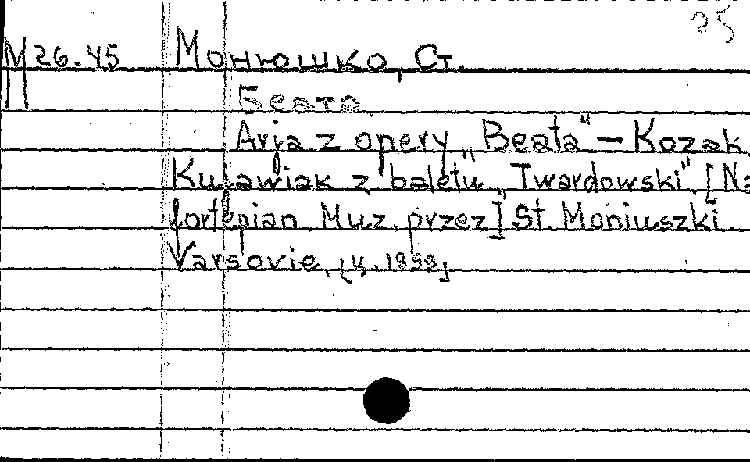 25
M 26.45 Монюшко, Ст.
Беата
Arja z opery „Beata" — Kozak
Kujawiak z baletu „Twardowski". [Na
fortepian Muz. przez] St. Moniuszki
Varsovie,